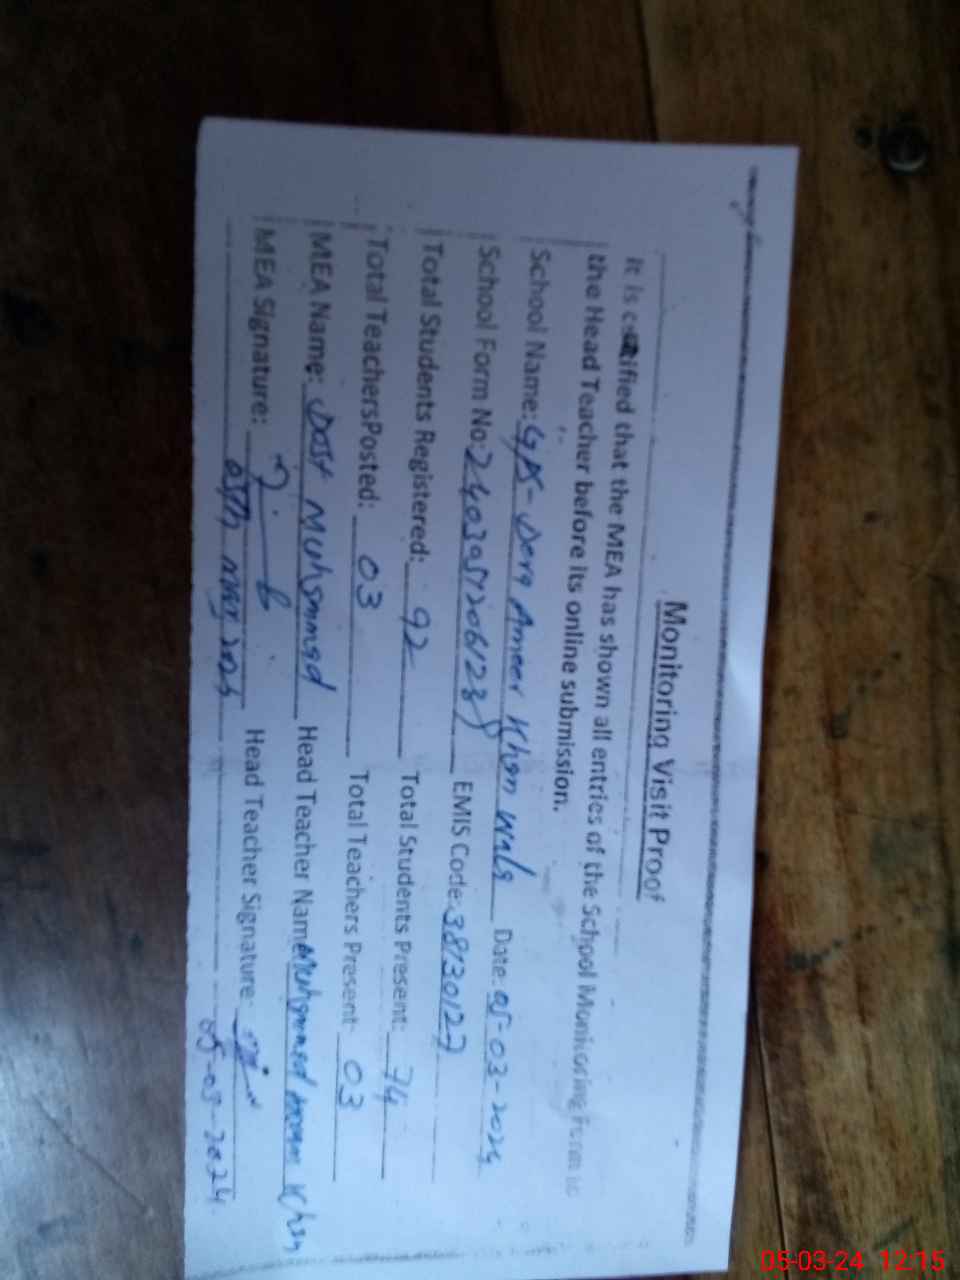 Monitoring Visit Proof
It is certified that the MEA has shown all entries of the School Monitoring Form to
the Head Teacher before its online submission.
School Name: GPS-Dera Ameer Khan Wala Date: 05-03-2024
School Form No: EMIS Code: 38130127
Total Students Registered: 92 Total Students Present: 74
Total TeachersPosted: 03 Total Teachers Present: 03
MEA Name: Dost Muhammad Head Teacher Name Muhammad Khan
MEA Signature: Head Teacher Signature:
05th 2024 05-03-2024
05-03-24 12:15